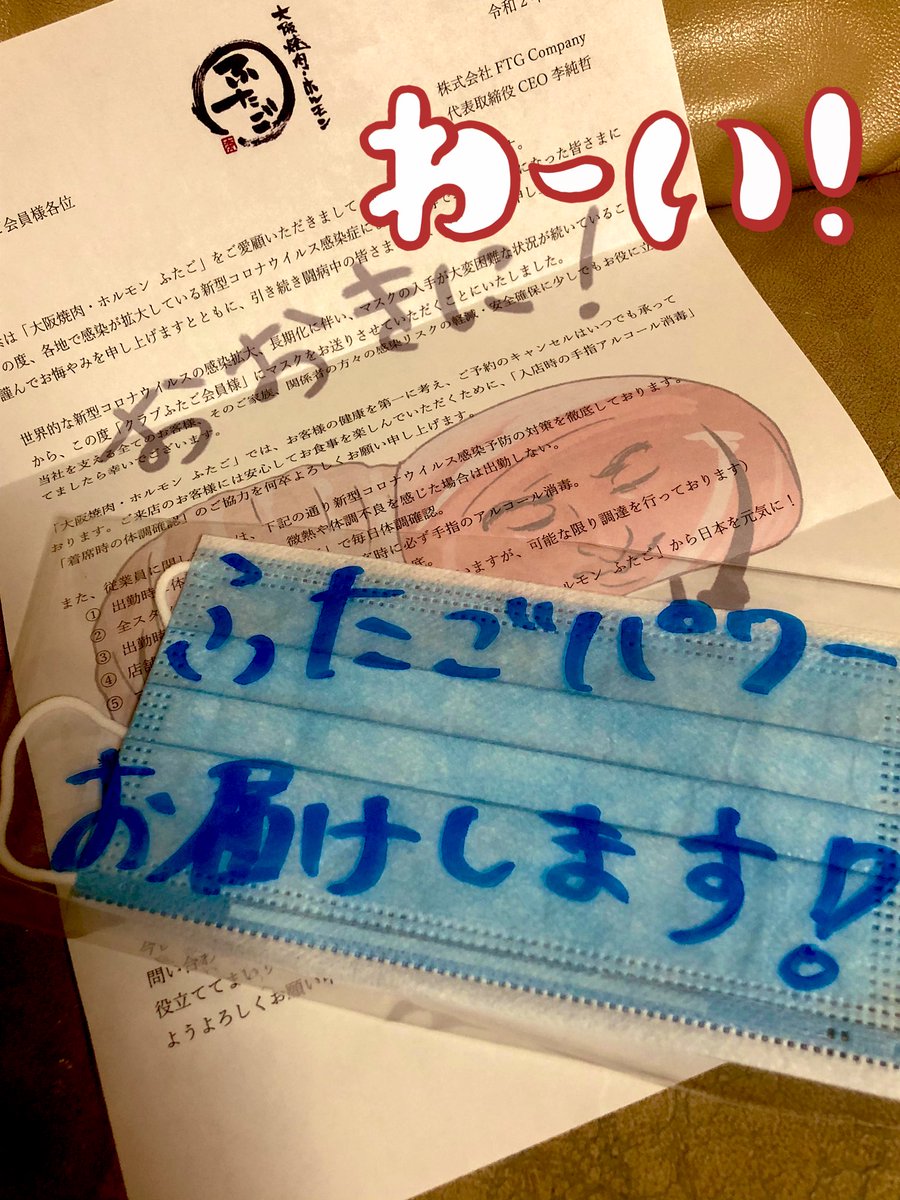 大阪焼肉・ホルモン
ふたご
令和2年
株式会社 FTG Company
代表取締役 CEO 李純哲
わーい!
会員様各位
は「大阪焼肉・ホルモン ふたご」をご愛顧いただきまして
の度、各地で感染が拡大している新型コロナウイルス感染症に
になった皆さまに
謹んでお悔やみを申し上げますとともに、引き続き闘病中の皆さま
おおきに!
世界的な新型コロナウイルスの感染拡大、長期化に伴い、マスクの入手が大変困難な状況が続いているこ
から、この度「クラブふたご会員様」にマスクをお送りさせていただくことにいたしました。
当社を支える全てのお客様、そのご家族、関係者の方々の感染リスクの軽減・安全確保に少しでもお役に立
てましたら幸いでございます。
「大阪焼肉・ホルモン ふたご」では、お客様の健康を第一に考え、ご予約のキャンセルはいつでも承って
おります。ご来店のお客様には安心してお食事を楽しんでいただくために、「入店時の手指アルコール消毒」
「着席時の体調確認」のご協力を何卒よろしくお願い申し上げます。
また、従業員に関
は、下記の通り新型コロナウイルス感染予防の対策を徹底しております。
① 出勤時
微熱や体調不良を感じた場合は出勤しない。
② 全スタ
で毎日体調確認。
③ 出勤時
時に必ず手指のアルコール消毒。
④ 店舗
いますが、可能な限り調達を行っております)
⑤
ルモン ふたご」から日本を元気に!
ふたごパワー
お届けします!
問い合わ
役立ててまい
ようよろしくお願い